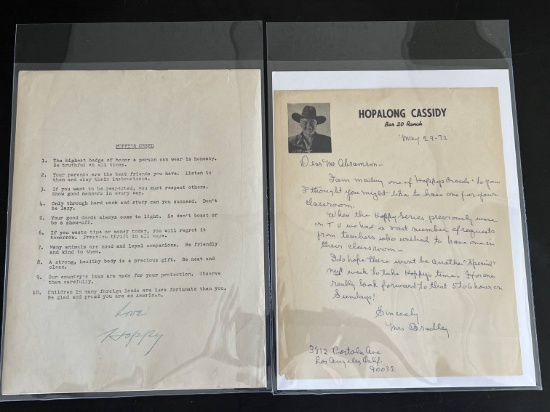 HOPPY'S CREED
1. The highest badge of honor a person can wear is honesty.
Be truthful at all times.
2. Your parents are the best friends you have. Listen to
them and obey their instructions.
3. If you want to be respected, you must respect others.
Show good manners in every way.
4. Only through hard work and study can you succeed. Don't
be lazy.
5. Your good deeds always come to light. So don't boast or
be a show-off.
6. If you waste time or money today, you will regret it
tomorrow. Practice thrift in all ways.
7. Many animals are good and loyal companions. Be friendly
and kind to them.
8. A strong, healthy body is a precious gift. Be neat and
clean.
9. Our country's laws are made for your protection. Observe
them carefully.
10. Children in many foreign lands are less fortunate than you.
Be glad and proud you are an American.
Love
Hoppy
HOPALONG CASSIDY
Bar 20 Ranch
May 29-72
Dear Mr Abramson-
I am mailing one of Hoppy's Creeds to you
I thought you might like to have one for your
classroom.
When the Hoppy Series previously were
on T V we had a vast number of requests
from teachers who wished to have one in
their classroom-
I do hope there wont be another "Special"
next week to take Hoppy's time-
really look forward to that 5 to 6 hour on
Sundays!
Sincerely
Mrs Bradley
Portola Ave
Los Angeles Calif.